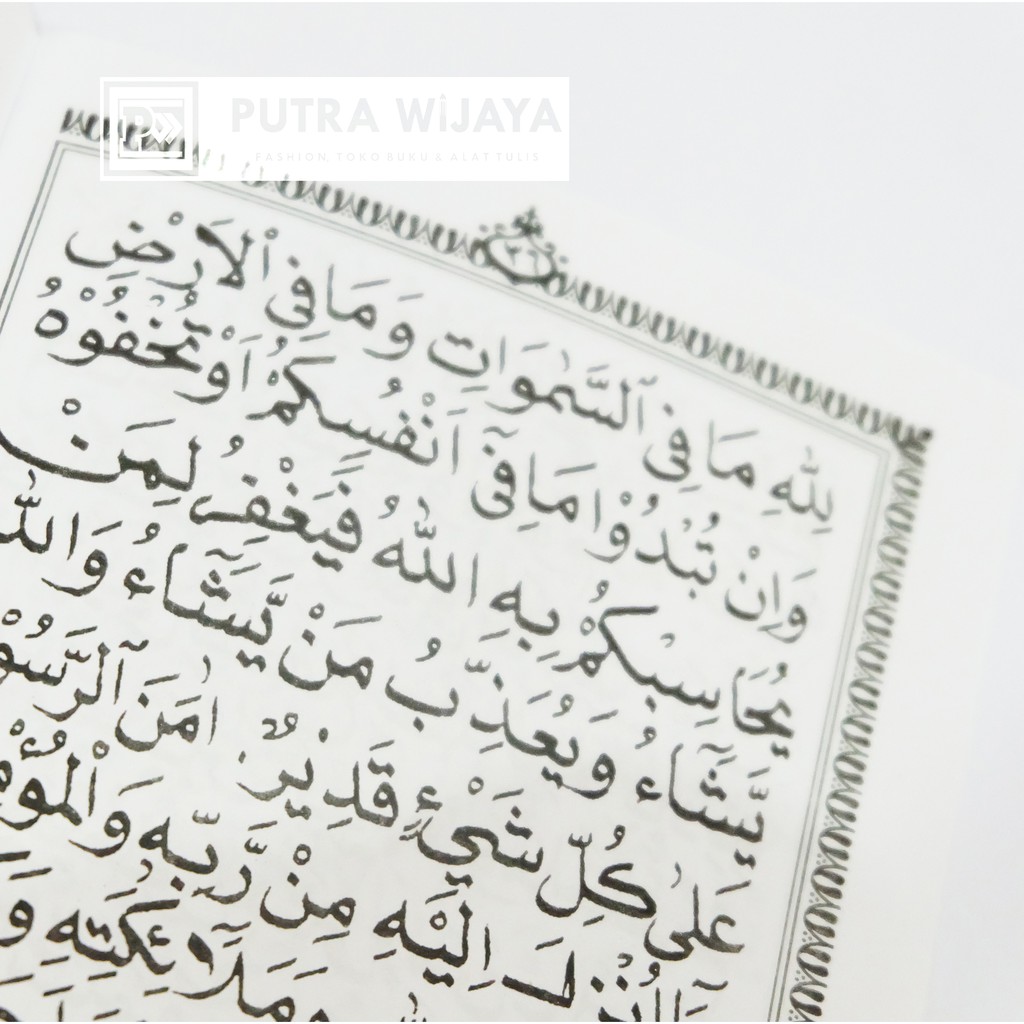 PUTRA WIJAYA
FASHION, TOKO BUKU & ALAT TULIS
٣٦
لِلّٰهِ مَا فِى ٱلسَّمٰوَاتِ وَمَا فِى ٱلْاَرْضِ
وَاِنْ تُبْدُوْا مَا فِىٓ اَنْفُسِكُمْ اَوْ تُخْفُوْهُ
يُحَاسِبْكُمْ بِهِ اللّٰهُ فَيَغْفِرُ لِمَنْ
يَّشَآءُ وَيُعَذِّبُ مَنْ يَّشَآءُ وَاللّٰ
عَلٰى كُلِّ شَيْءٍ قَدِيْرٌ اٰمَنَ ٱلرَّسُوْ
اِلَيْهِ مِنْ رَّبِّهٖ وَالْمُؤْمِ
وَمَلَآئِكَتِهٖ وَ